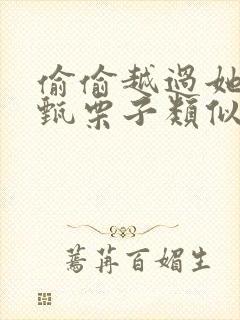 偷偷越過她
甄栗子類似
蔫苒百媚生